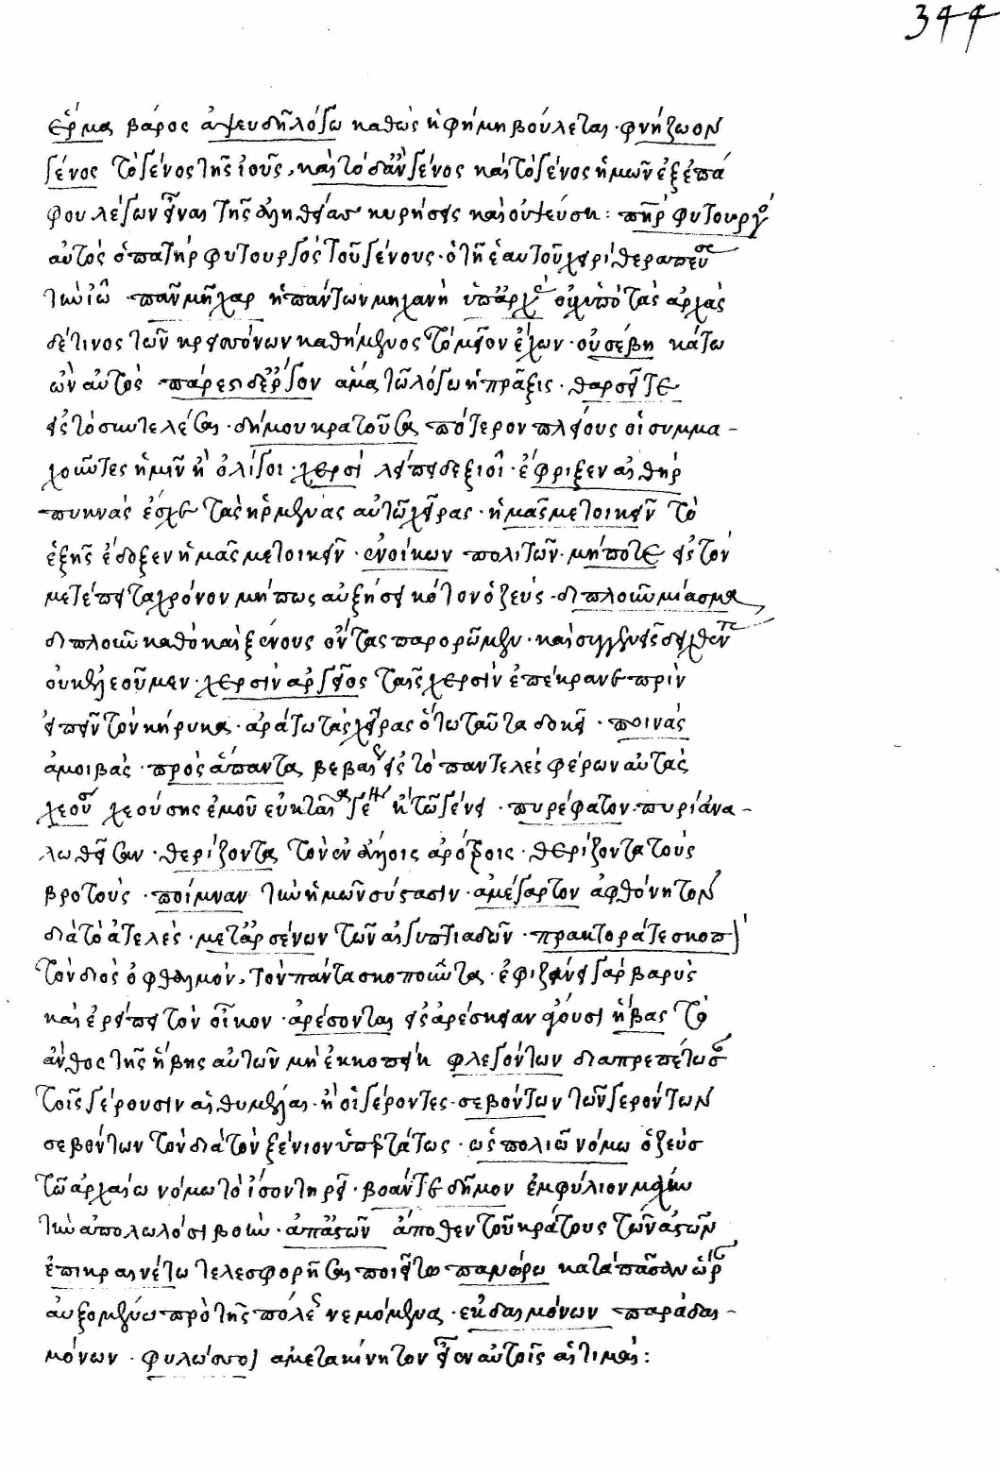 344
ἕρμα βάρος ἀψευδῆ λόγω καθὼς ἡ φήμη βούλεται· φυσιζωον
γένος τὸ γένος τῆς ἰοῦς, καὶ τὸ δᾶν γένος καὶ τὸ γένος ἡμῶν ἐξ ἐπά
φου λέγων εἶναι τῆς ἀληθείας κυρήσεις καὶ οὐ ψεύση: πατὴρ φυτουργὸ
αὐτὸς ὁ πατὴρ φυτουργὸς τοῦ γένους· ὁ τῆ ἑαυτοῦ χειρὶ θεραπεύσας
τὴν ἰὼ· πᾶν μῆχαρ ἡ πάντων μηχανὴ ὑπ' ἀρχᾶς οὐχ ὑπὸ τὰς ἀρχὰς
δέ τινος τῶν κρεισσόνων καθήμενος τὸ μεῖον ἔχων· οὐ σέβει κάτω
ὢν αὐτὸς πάρεστι δ' ἔργον ἅμα τῶ λόγω ἡ πρᾶξις· θαρσεῖτε
εἰς τὸ συντελέσαι· δήμου κρατοῦσα πότερον πλείους οἱ συμμα-
χοῦντες ἡμῖν ἢ ὀλίγοι· χερσὶ λείπει δεξιοῖ· ἔφριξεν αἰθὴρ
πυκνὰς ἔσχε τὰς ἠρμένας αὐτῶ χεῖρας· ἡμᾶς μετοικεῖν τὸ
ἑξῆς ἔδοξεν ἡμᾶς μετοικεῖν· ἐνοίκων πολιτῶν· μήποτε εἰς τὸν
μετέπειτα χρόνον μήπως αὐξήση κότον ὁ ζεὺς· διπλοῦν μίασμα
διπλοῦν καθὸ καὶ ξένους ὄντας παρορῶμεν· καὶ συγγενεῖς
οὐκ ἐλεοῦμεν· χερσὶν ἀργεῖος ταῖς χερσὶν ἐπέκρανε πρὶν
εἰπεῖν τὸν κήρυκα· ἀράτω τὰς χεῖρας ὅτω ταῦτα δοκεῖ· ποινὰς
ἀμοιβὰς· πρὸς ἅπαντα βεβαίως εἰς τὸ παντελὲς φέρων αὐτὰς
χεούσης χεούσης ἐμοῦ εὐκταῖα γένει τῶ γένει· πυρέφατον· πυρὶ ἀνα-
λωθεῖσαν· θερίζοντα τὸν ἐν ἄλλοις ἀρότροις· θερίζοντα τοὺς
βροτοὺς· ποίμναν τὴν ἡμῶν σύστασιν· ἀμέγαρτον ἀφθόνητον
διὰ τὸ ἀτελὲς· μετ' ἀρσένων τῶν αἰγυπτιαδῶν· πράκτορά τε σκοπ
τὸν διὸς ὀφθαλμὸν, τὸν πάντα σκοποῦντα· ἐφιζάνει γὰρ βαρὺς
καὶ ἐρείπει τὸν οἶκον· ἀρέσονται εἰς ἀρέσκειαν ἄξουσι ἥβας τὸ
ἄνθος τῆς ἥβης αὐτῶν μὴ ἐκκοπείη φλεγόντων διαπρεπέτωσαν
τοῖς γέρουσιν αἱ θυμέλαι· ἢ οἱ γέροντες· σεβόντων τῶν γερόντων
σεβόντων τὸν δία τὸν ξένιον ὑπερτάτως· ὡς πολιῶ νόμω ὁ ζεὺς
τῶ ἀρχαίω νόμω τὸ ἴσον τηρεῖ· βοάν τ' ἔνδημον ἐμφύλιον μάχην
τὴν ἀπολωλόσι βοὴν· ἀπ' ἀστῶν ἄποθεν τοῦ κράτους τῶν ἀστῶν
ἐπικραινέτω τελεσφορῆσαι ποιείτω πανώρω κατὰ πᾶσαν ὥραν
αὐξομένην πρὸ τῆς πόλεως νεμόμενα· ἐκ δαιμόνων παρὰ δαι-
μόνων· φυλάσσοι ἀμετακίνητον εἶεν αὐτοῖς αἱ τιμαὶ: